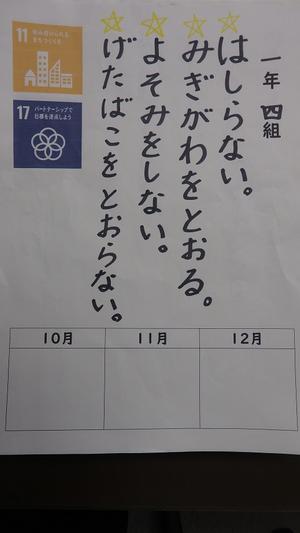 一年 四組
☆はしらない。
☆みぎがわをとおる。
☆よそみをしない。
☆げたばこをとおらない。
11 住み続けられる
まちづくりを
17 パートナーシップで
目標を達成しよう
10月 11月 12月